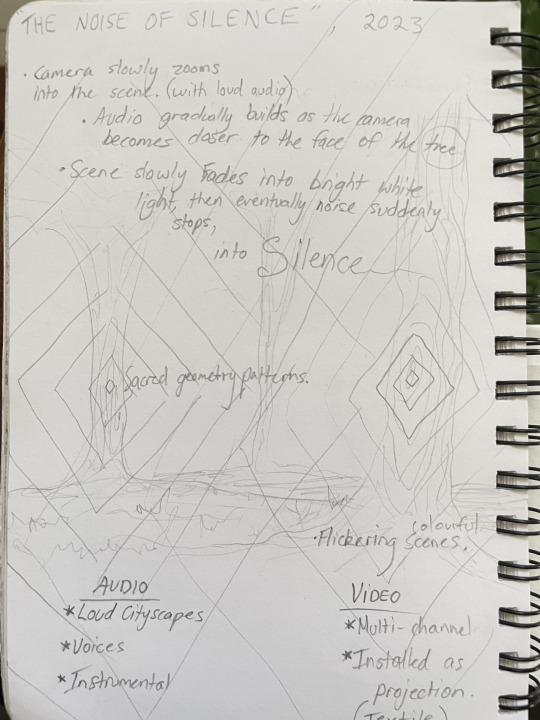 "THE NOISE OF SILENCE", 2023
· Camera slowly zooms
into the scene. (with loud audio)
· Audio gradually builds as the camera
becomes closer to the face of the tree
· Scene slowly fades into bright white
light, then eventually noise suddenly
stops,
into Silence
Sacred geometry patterns.
colourful
· Flickering scenes.
AUDIO
* Loud Cityscapes
* Voices
* Instrumental
VIDEO
* Multi-channel
* Installed as
projection.
(Textile)